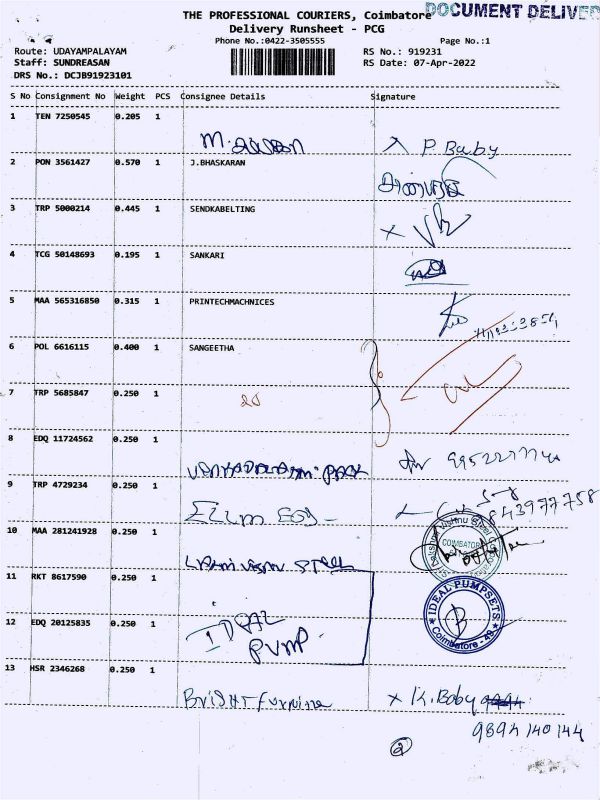 THE PROFESSIONAL COURIERS, Coimbatore
DOCUMENT DELIVER
Delivery Runsheet - PCG
Phone No.:0422-3505555 Page No.:1
Route: UDAYAMPALAYAM RS No.: 919231
Staff: SUNDREASAN RS Date: 07-Apr-2022
DRS No.: DCJB91923101
S No Consignment No Weight PCS Consignee Details Signature
1 TEN 7250545 0.205 1
P. Baby
2 PON 3561427 0.570 1 J.BHASKARAN
3 TRP 5000214 0.445 1 SENDKABELTING
4 TCG 50148693 0.195 1 SANKARI
5 MAA 565316850 0.315 1 PRINTECHMACHNICES
6 POL 6616115 0.400 1 SANGEETHA
7 TRP 5685847 0.250 1
8 EDQ 11724562 0.250 1
9 TRP 4729234 0.250 1
10 MAA 281241928 0.250 1
STEEL
COIMBATORE
11 RKT 8617590 0.250 1
12 EDQ 20125835 0.250 1
IDEAL
PUMP
IDEAL PUMPSETS
Coimbatore - 49
13 HSR 2346268 0.250 1
Bright Furniture x K. Baby
9894 140 144
2